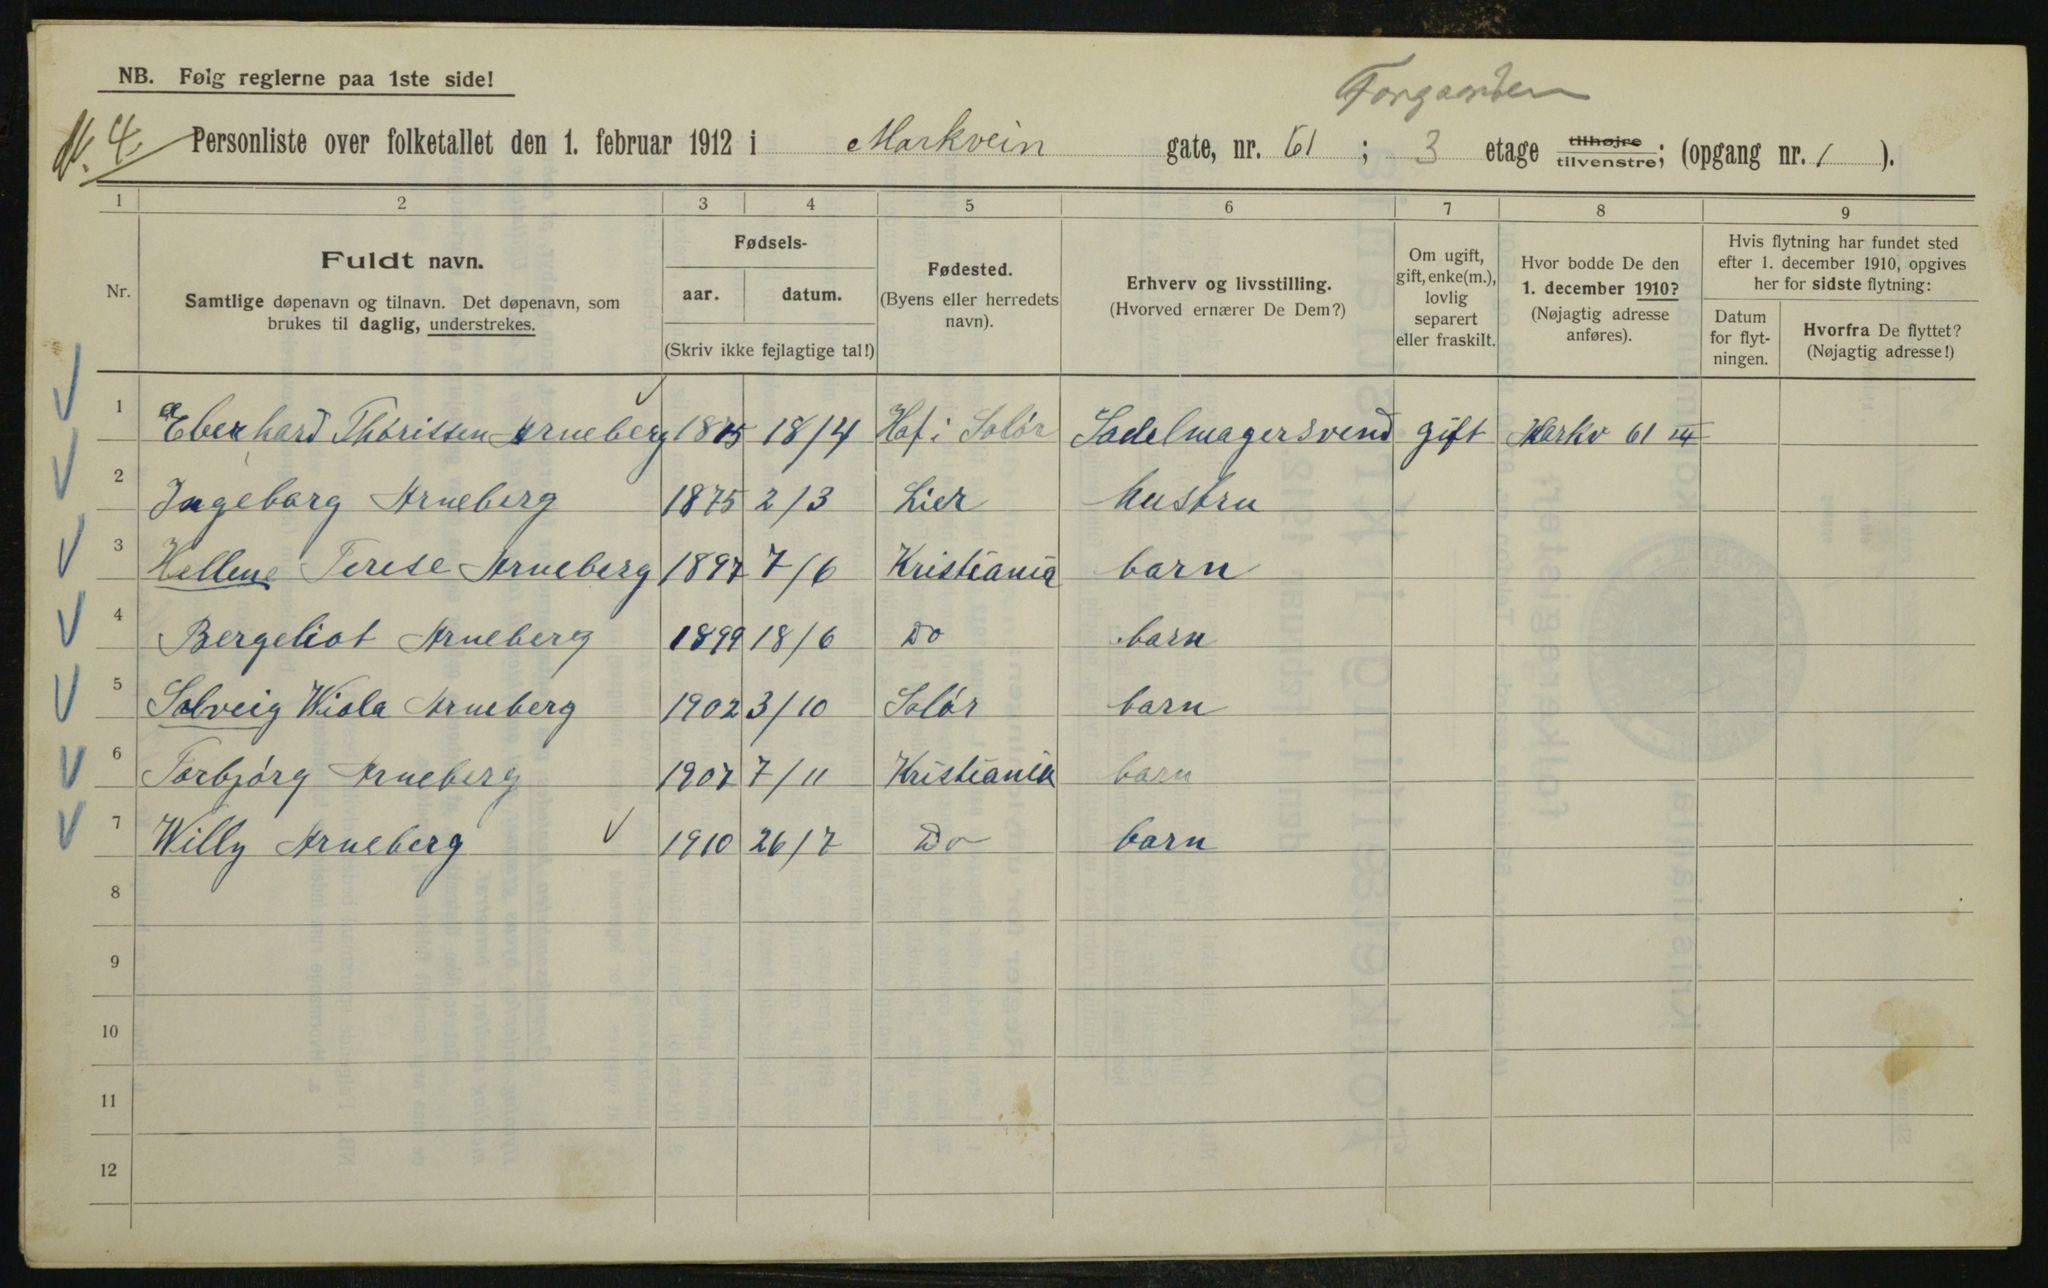 NB. Følg reglerne paa 1ste side!
Forgaarden
№. 4. Personliste over folketallet den 1. februar 1912 i Markvein gate, nr. 61 ; 3 etage tilhøjre tilvenstre; (opgang nr. 1 ).
1 2 3 4 5 6 7 8 9
Nr.
Fuldt navn.
Samtlige døpenavn og tilnavn. Det døpenavn, som
brukes til daglig, understrekes.
Fødsels-
aar. datum.
(Skriv ikke fejlagtige tal!)
Fødested.
(Byens eller herredets
navn).
Erhverv og livsstilling.
(Hvorved ernærer De Dem?)
Om ugift,
gift, enke(m.),
lovlig
separert
eller fraskilt.
Hvor bodde De den
1. december 1910?
(Nøjagtig adresse
anføres).
Hvis flytning har fundet sted
efter 1. december 1910, opgives
her for sidste flytning:
Datum
for flyt-
ningen.
Hvorfra De flyttet?
(Nøjagtig adresse!)
1 Eberhard Thorissen Arneberg 1875 18/4 Hof i Solór Sadelmagersvend gift Markv 61 III
2 Ingeborg Arneberg 1875 2/3 Lier hustru
3 Hellene Terese Arneberg 1897 7/6 Kristiania barn
4 Bergeliot Arneberg 1899 18/6 Do barn
5 Solveig Wiola Arneberg 1902 3/10 Solór barn
6 Torbjórg Arneberg 1907 7/11 Kristiania barn
7 Willy Arneberg 1910 26/7 Do barn
8
9
10
11
12